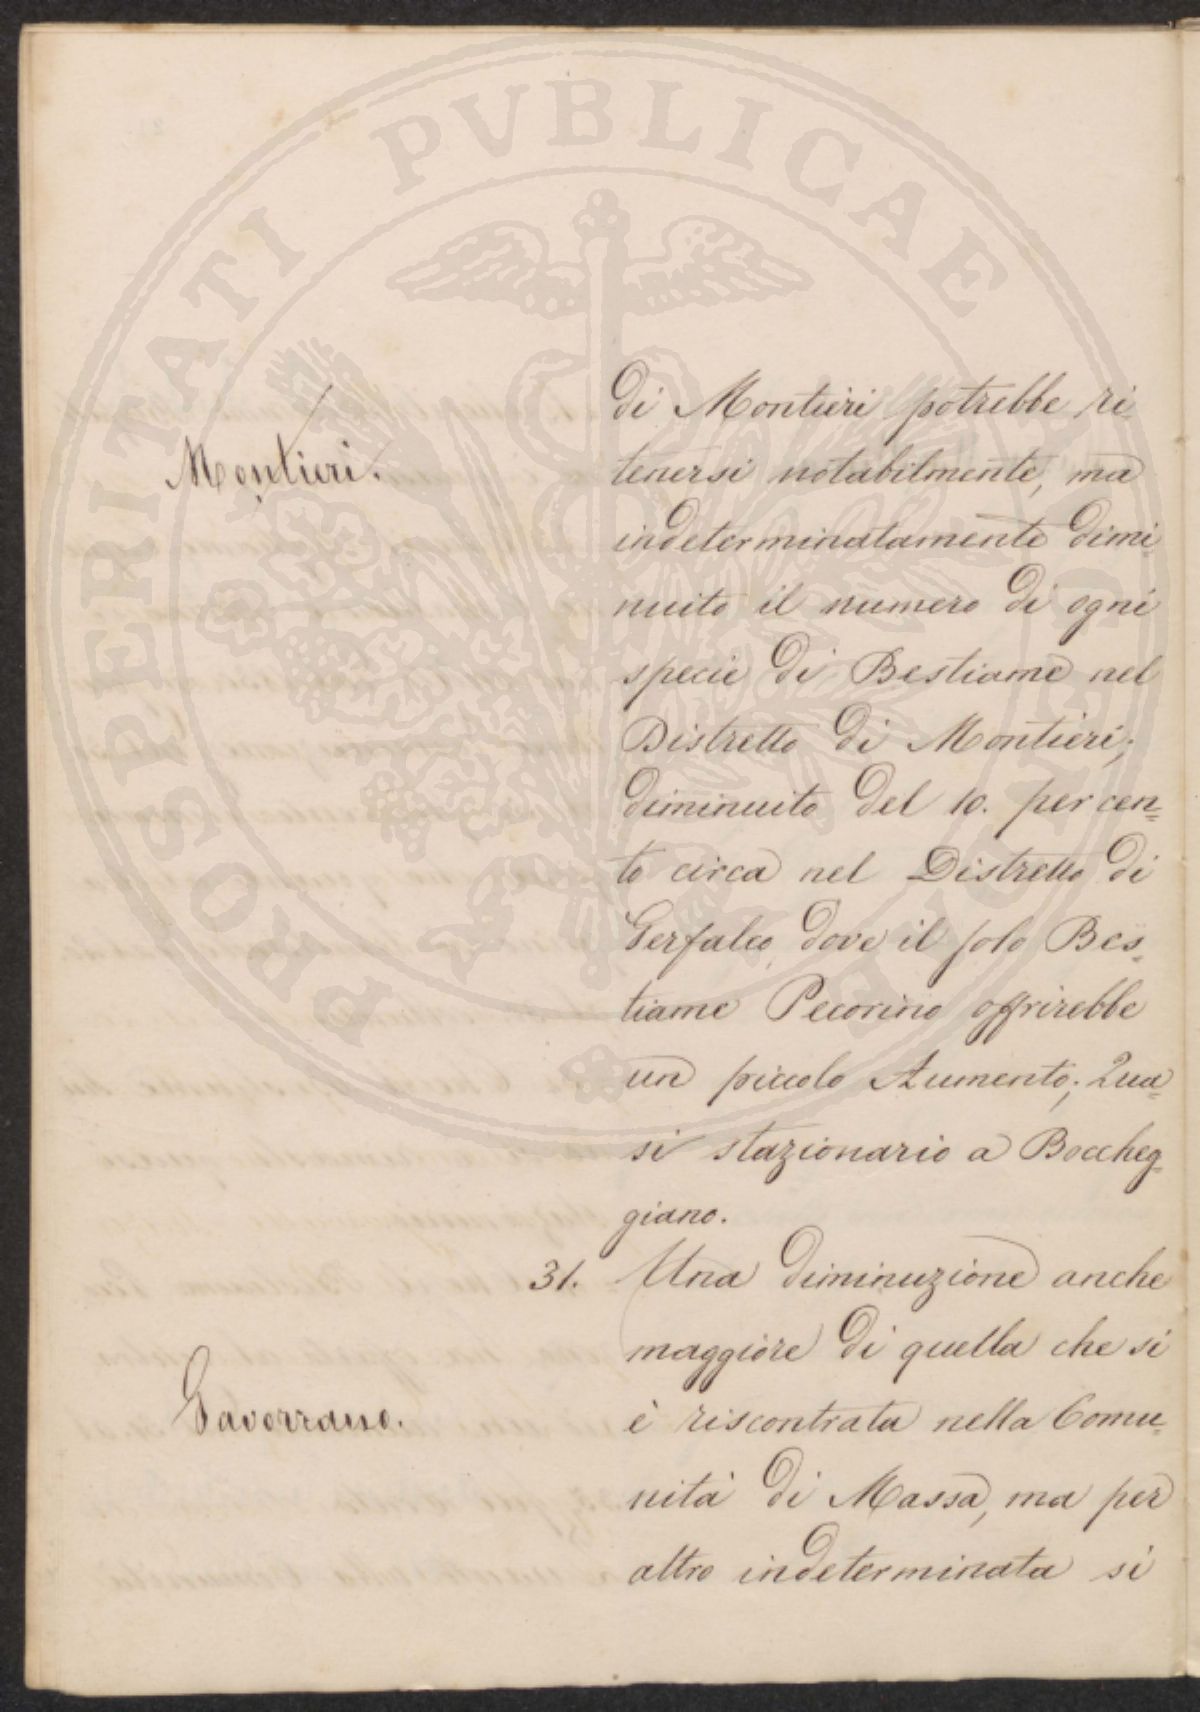 PROSPERITATI PVBLICAE
Montieri.
di Montieri potrebbe ri
tenersi notabilmente, ma
indeterminatamente dimi-
nuito il numero di ogni
specie di Bestiame nel
Distretto di Montieri;
diminuito del 10. per cen=
to circa nel Distretto di
Gerfalco, dove il solo Bes=
tiame Pecorino offrirebbe
un piccolo Aumento; Qua=
si stazionario a Boccheg=
giano.
31. Una diminuzione anche
maggiore di quella che si
Gavorrano.
è riscontrata nella Comu=
nità di Massa, ma per
altro indeterminata si